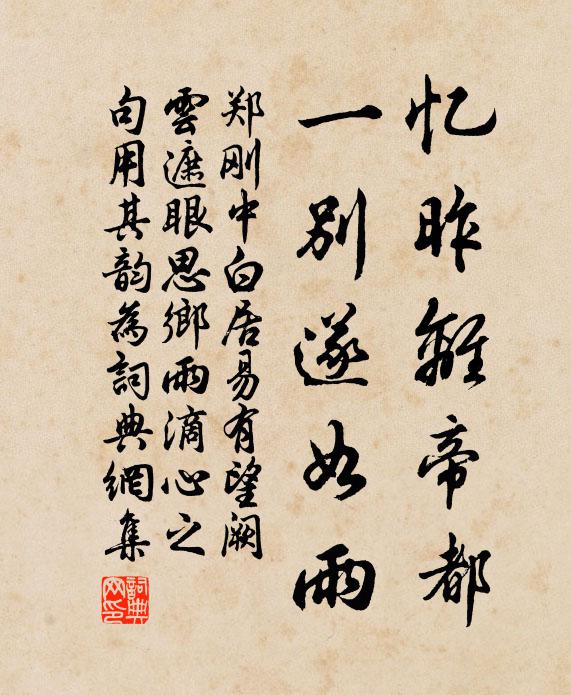 忆昨離帝都
一别遂如雨
郑刚中白居易有望阙
雲遮眼思鄉雨滴心之
句用其韵為詞典網集
詞典
网印